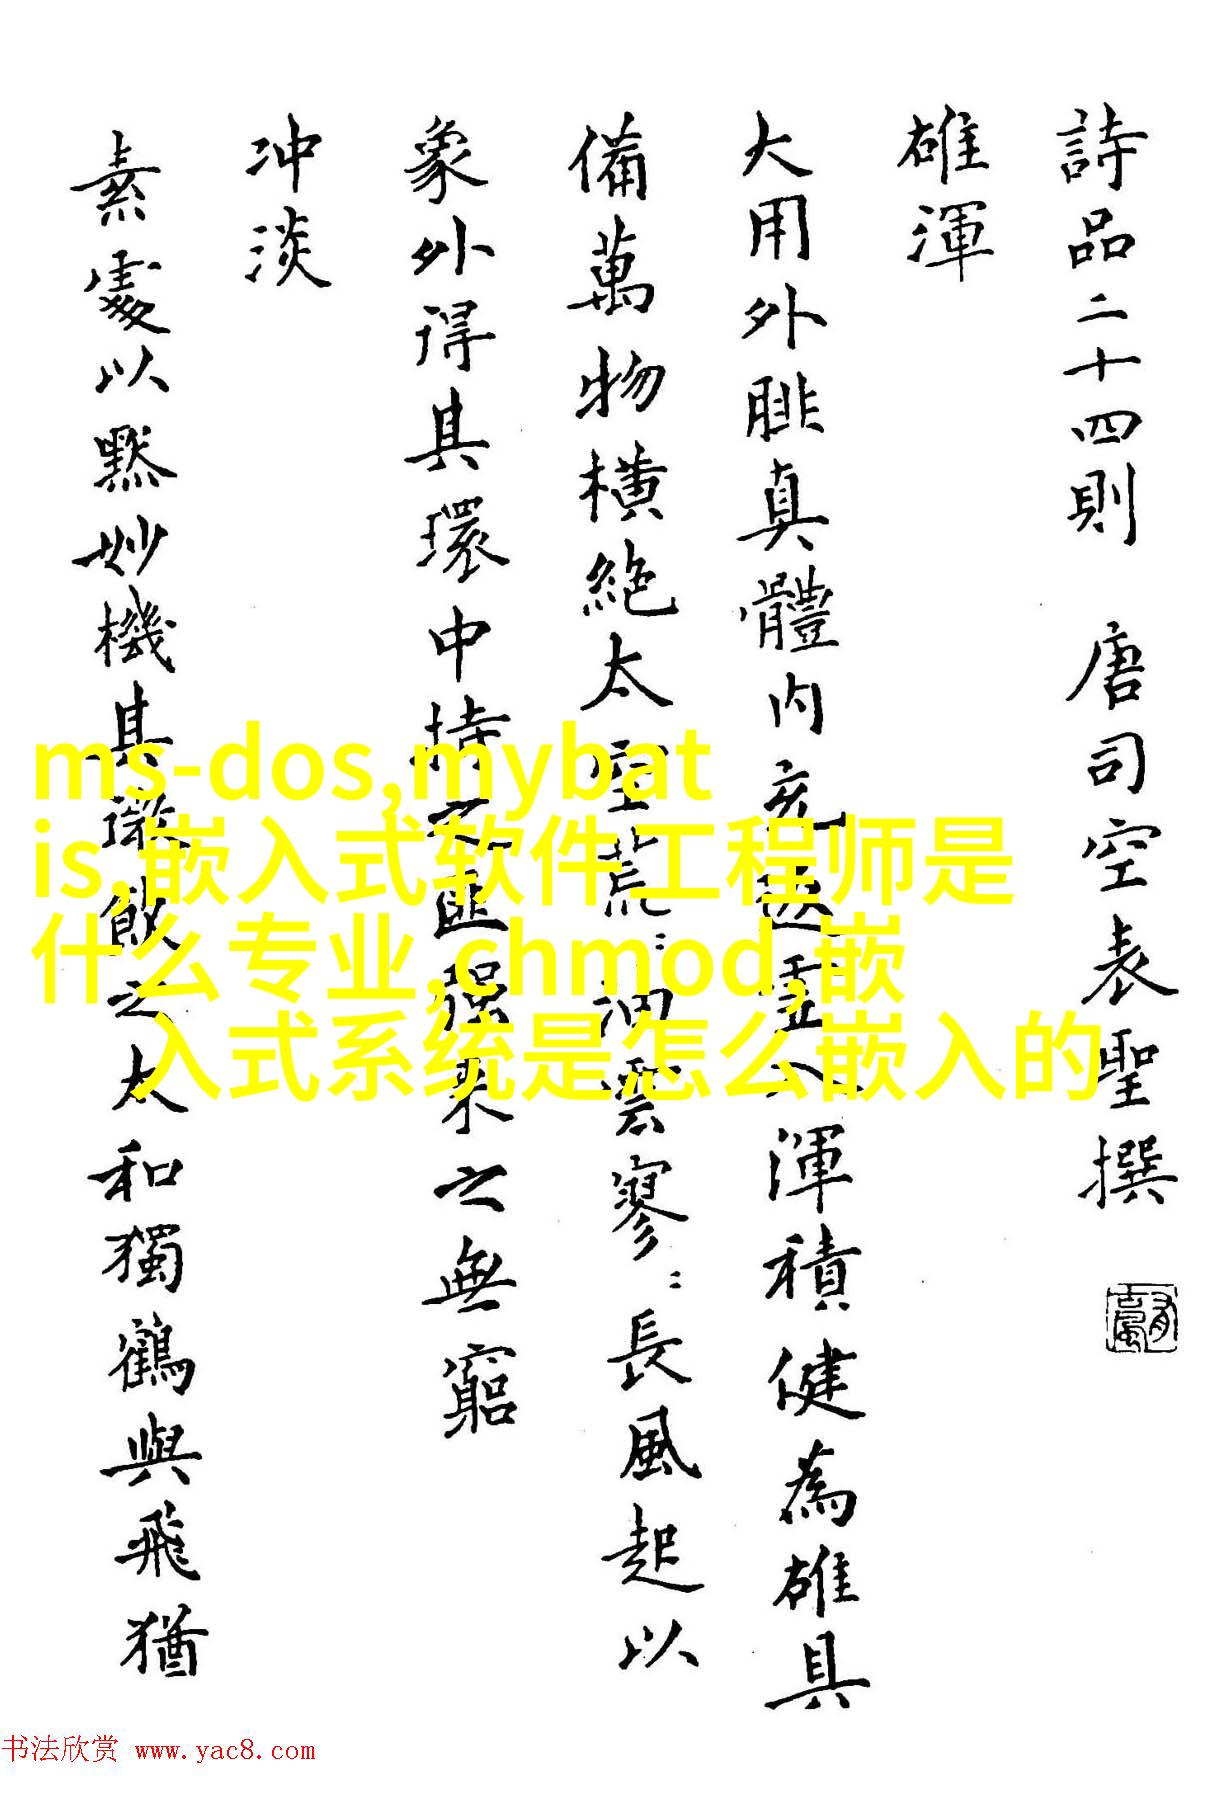 詩品二十四則 唐司空表聖撰
雄渾
大用外腓真體内充返虛入渾積健為雄具
備萬物橫絕太空荒〻油雲寥〻長風超以
象外得其環中持之匪強來之無窮
冲淡
素處以默妙機其微飲之太和獨鶴與飛猶
ms-dos,mybat
is,嵌入式软件工程师是
什么专业,chmod,嵌
入式系统是怎么嵌入的
书法欣赏 www.yac8.com